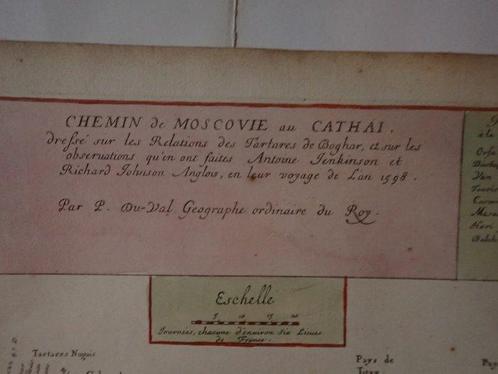 CHEMIN de MOSCOVIE au CATHAI,
dressé sur les Relations des Tartares de Boghar, et sur les
observations qu'en ont faites Antoine Jenkinson et
Richard Johnson Anglois, en leur voyage de L'an 1598.
Par P. Du-Val Geographe ordinaire du Roy.
Eschelle
5 10 15 20
Journées, chacune d'environ six Lieues
de France.
Tartares Nogais
Pays de